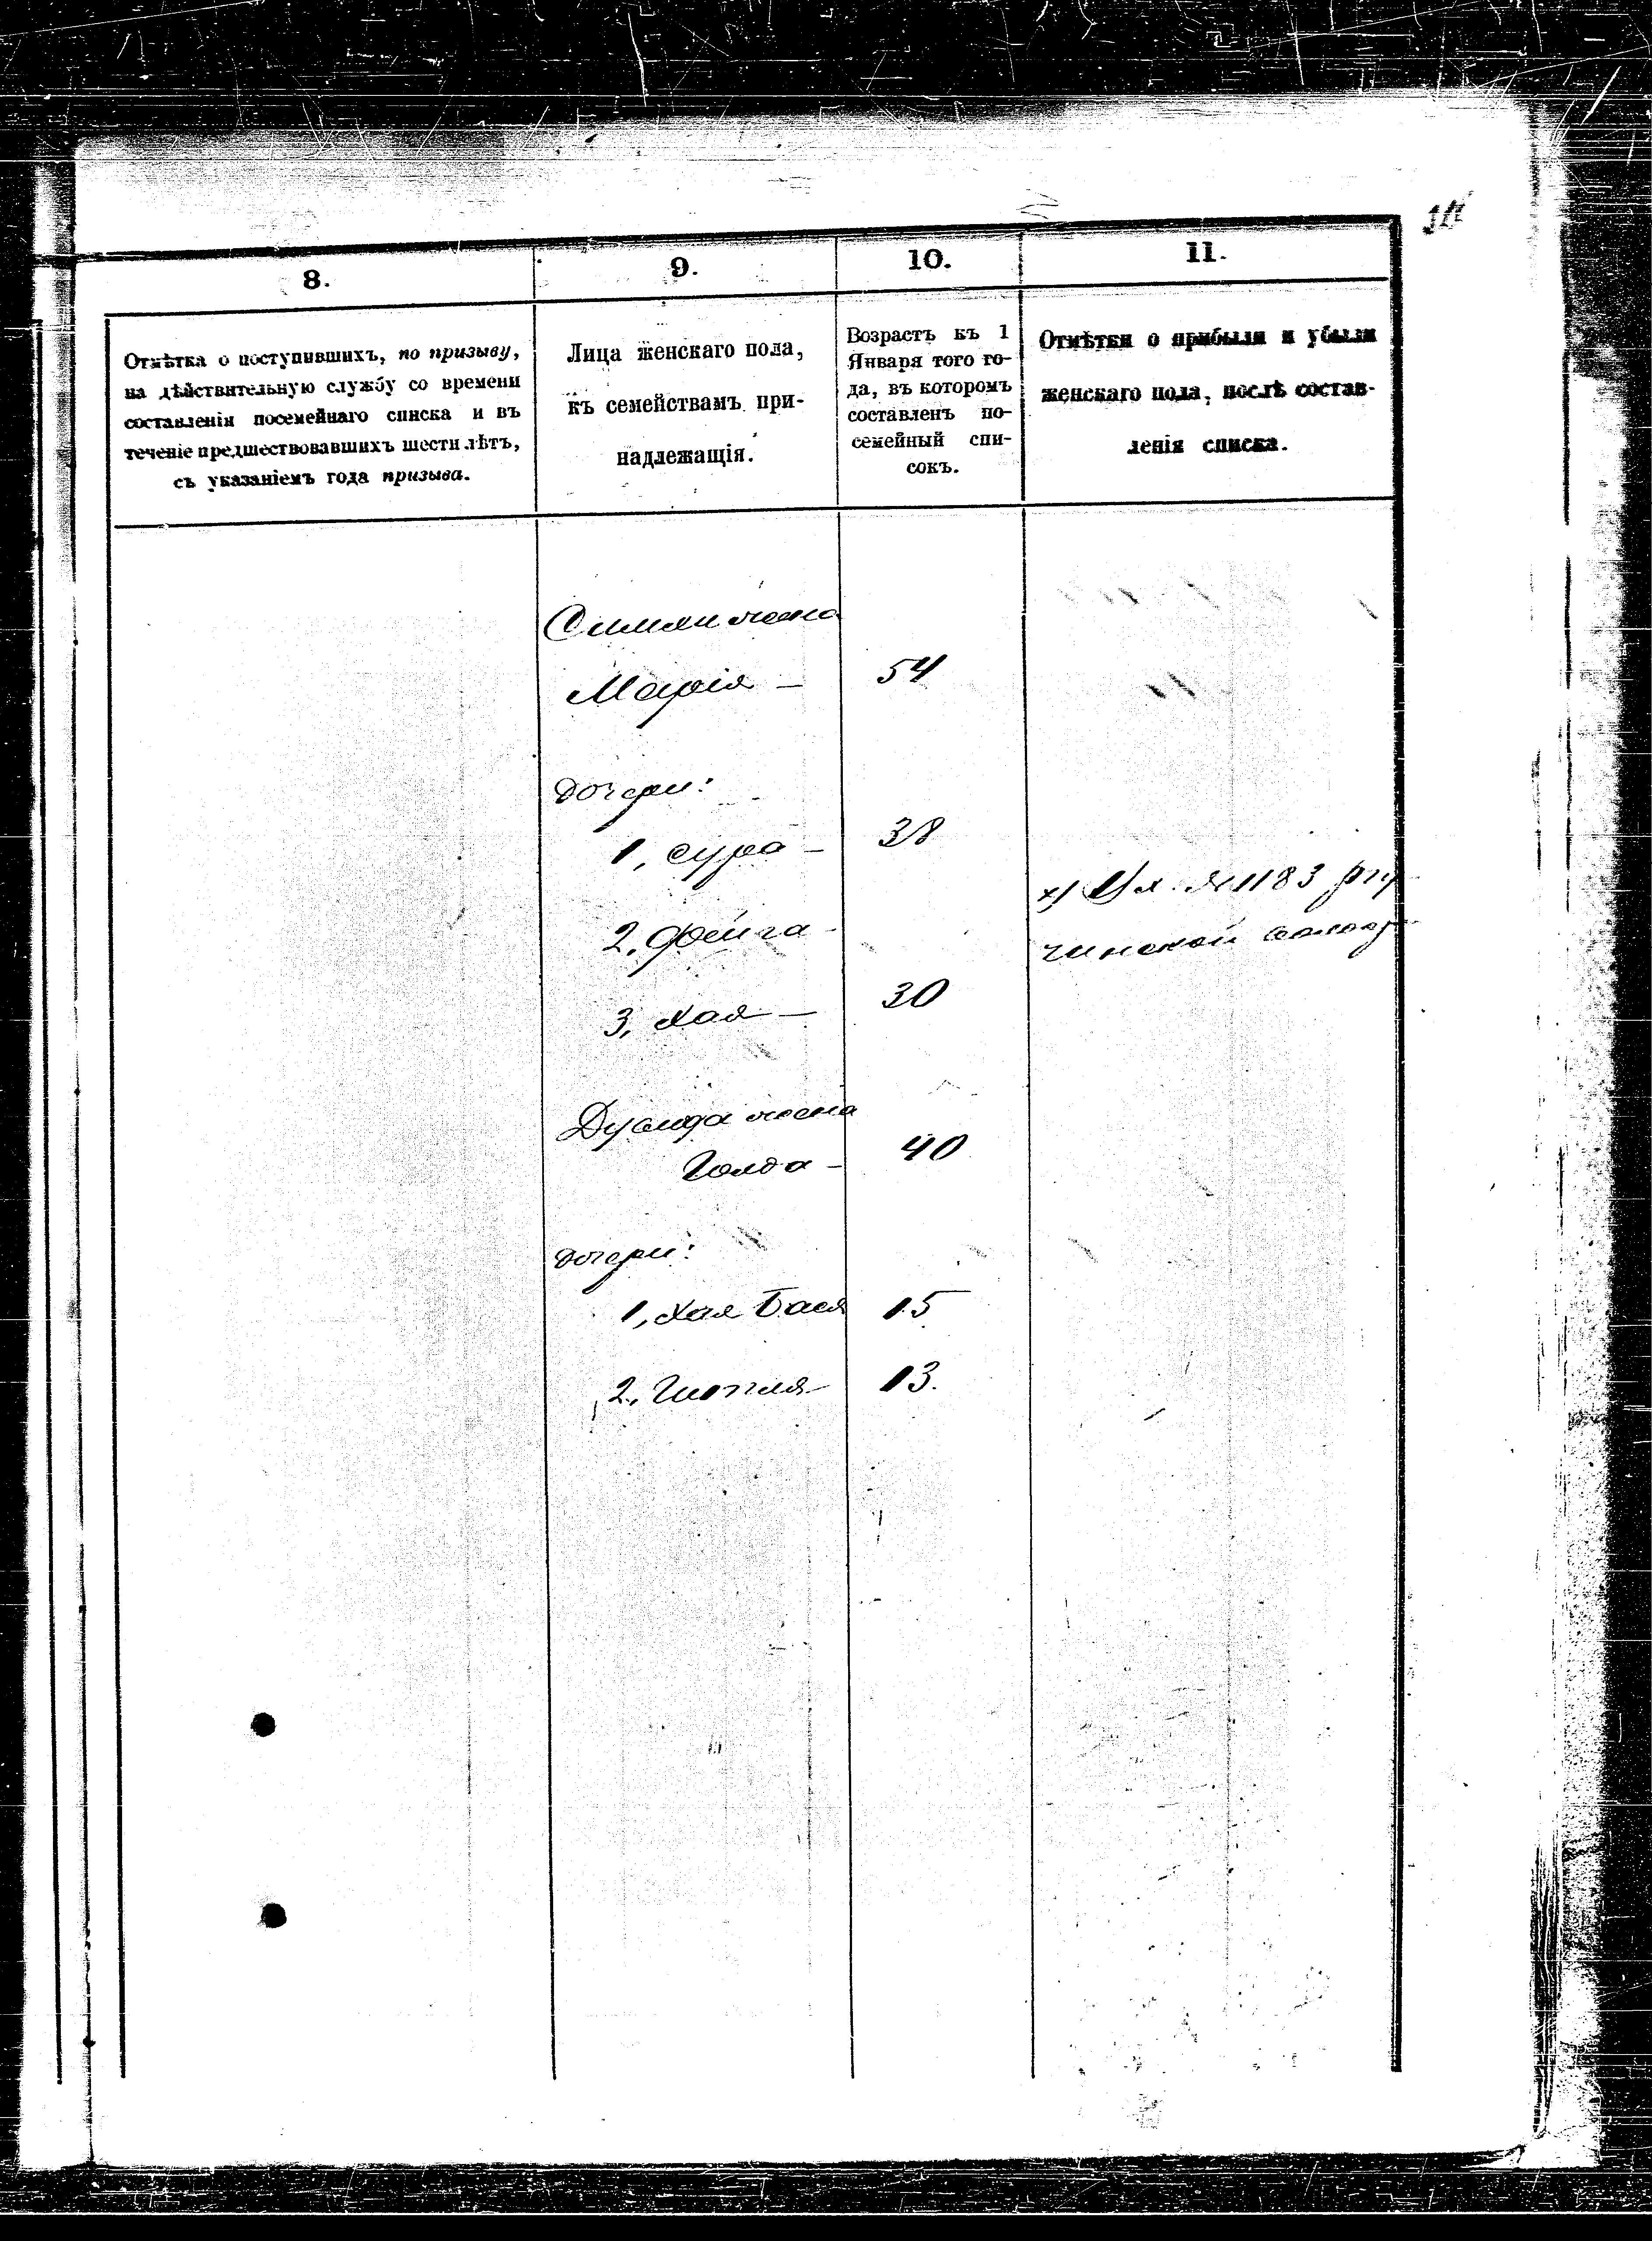 8.
9.
10.
11.
Отмѣтка о поступившихъ, по призыву,
на дѣйствительную службу со времени
составленія посемейнаго списка и въ
теченіе предшествовавшихъ шести лѣтъ,
съ указаніемъ года призыва.
Лица женскаго пола,
къ семействамъ при-
надлежащія.
Возрастъ къ 1
Января того го-
да, въ которомъ
составленъ по-
семейный спи-
сокъ.
Отмѣтки о прибыли и убыли
женскаго пола, послѣ состав-
ленія списка.
жена
Марія — 54
дочери:
1, Сура — 38
2, Фейга —
х) № 1183
3, Хая — 30
жена
Голда — 40
дочери:
1, Хая Бася 15
2, 13.